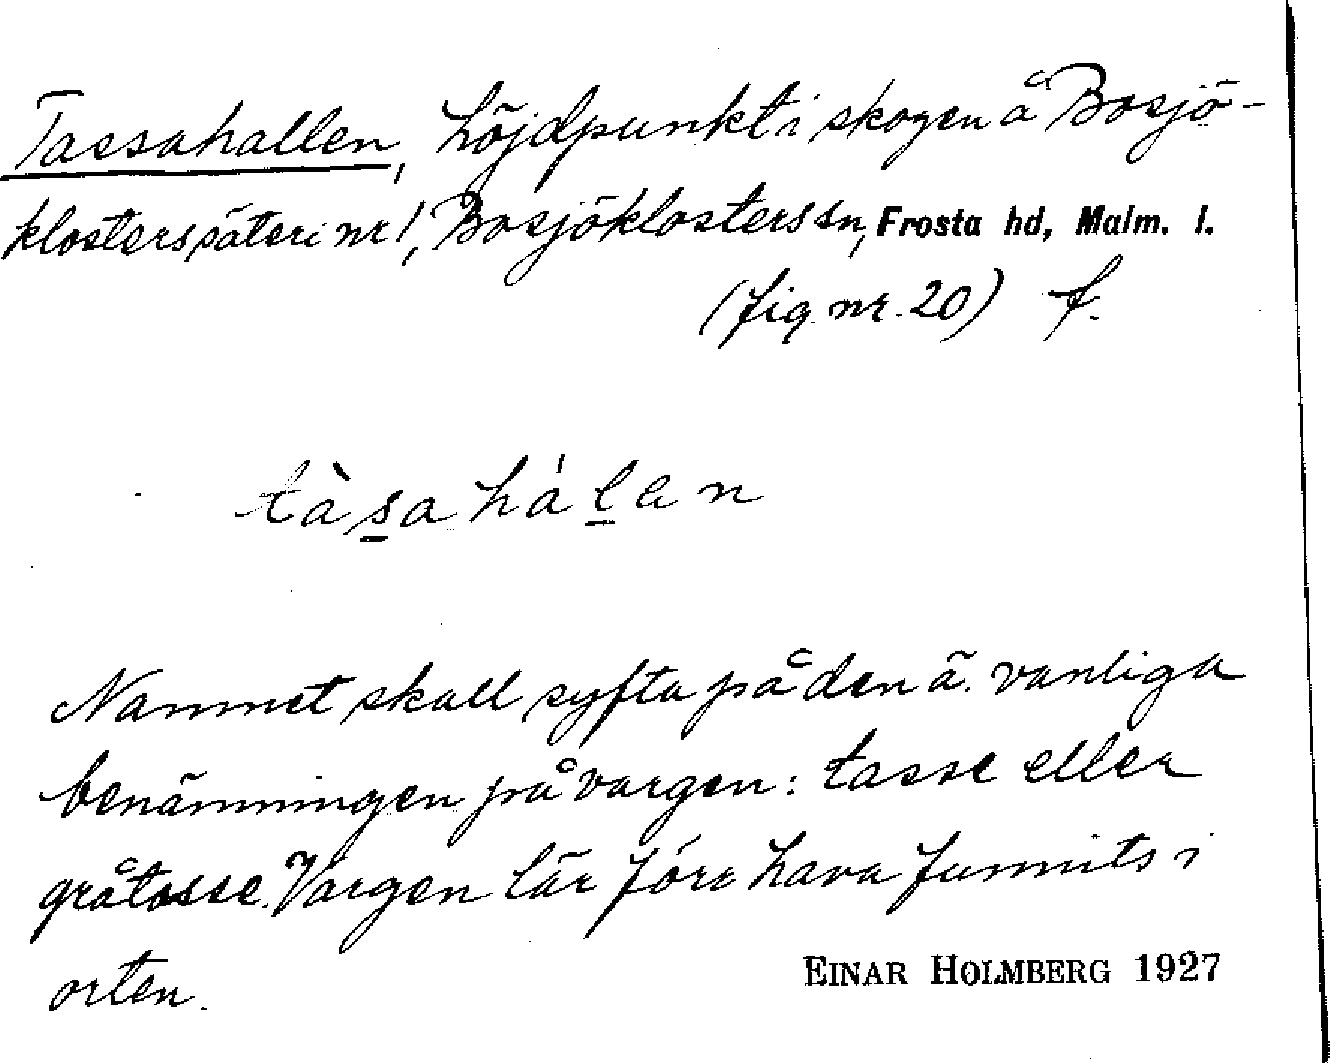 Tassahallen, höjdpunkt i skogen å Bosjö-
klosters säteri nr 1, Bosjöklosters sn, Frosta hd, Malm. l.
(fig nr. 20) f.
tàsahálen
Namnet skall syfta på den ä. vanliga
benämningen på vargen: tasse eller
gråtasse. Vargen lär förr hava funnits i
orten.
EINAR HOLMBERG 1927